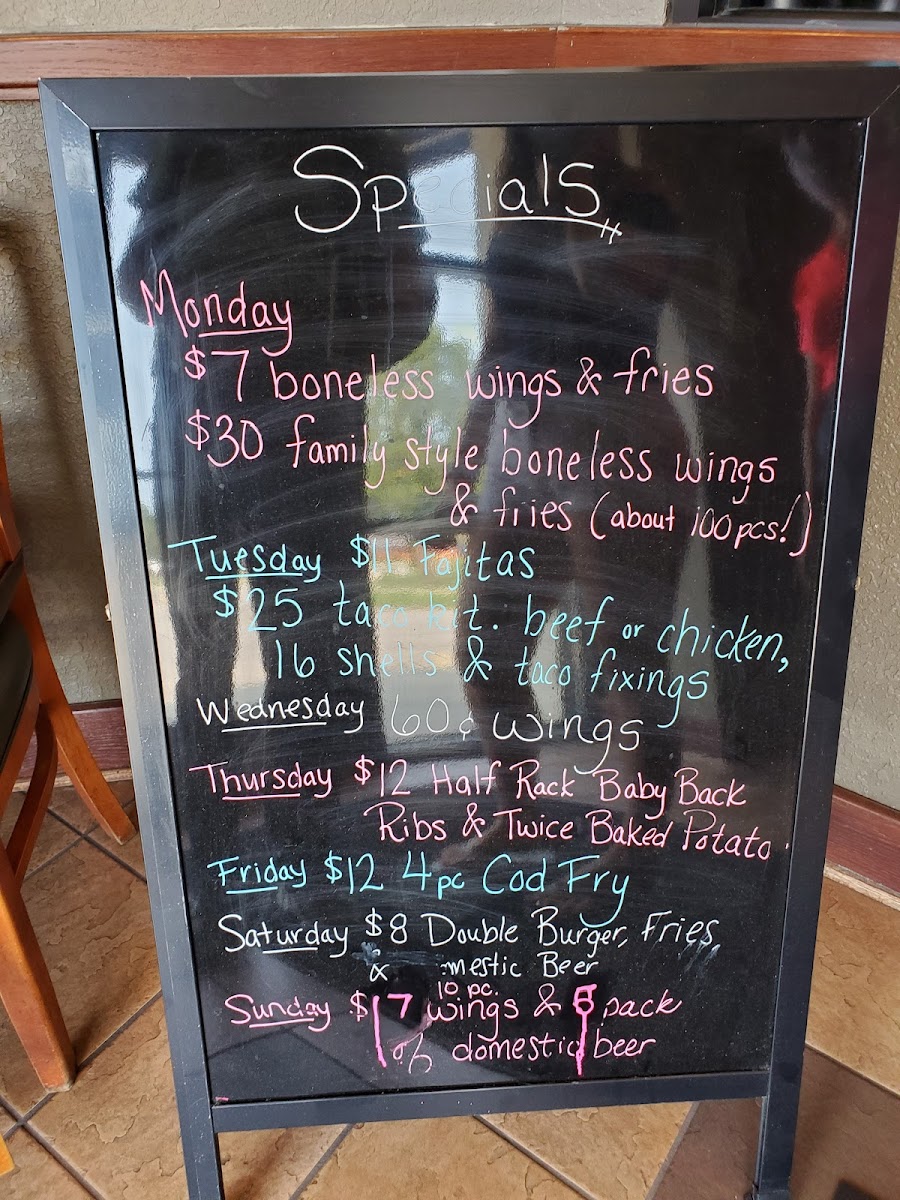 Specials
Monday
$7 boneless wings & fries
$30 family style boneless wings
& fries (about 100pcs!)
Tuesday $11 Fajitas
$25 taco kit: beef or chicken,
16 shells & taco fixings
Wednesday 60¢ wings
Thursday $12 Half Rack Baby Back
Ribs & Twice Baked Potato.
Friday $12 4pc Cod Fry
Saturday $8 Double Burger, Fries,
& mestic Beer
10 pc.
Sunday $17 wings & pack
of domestic beer